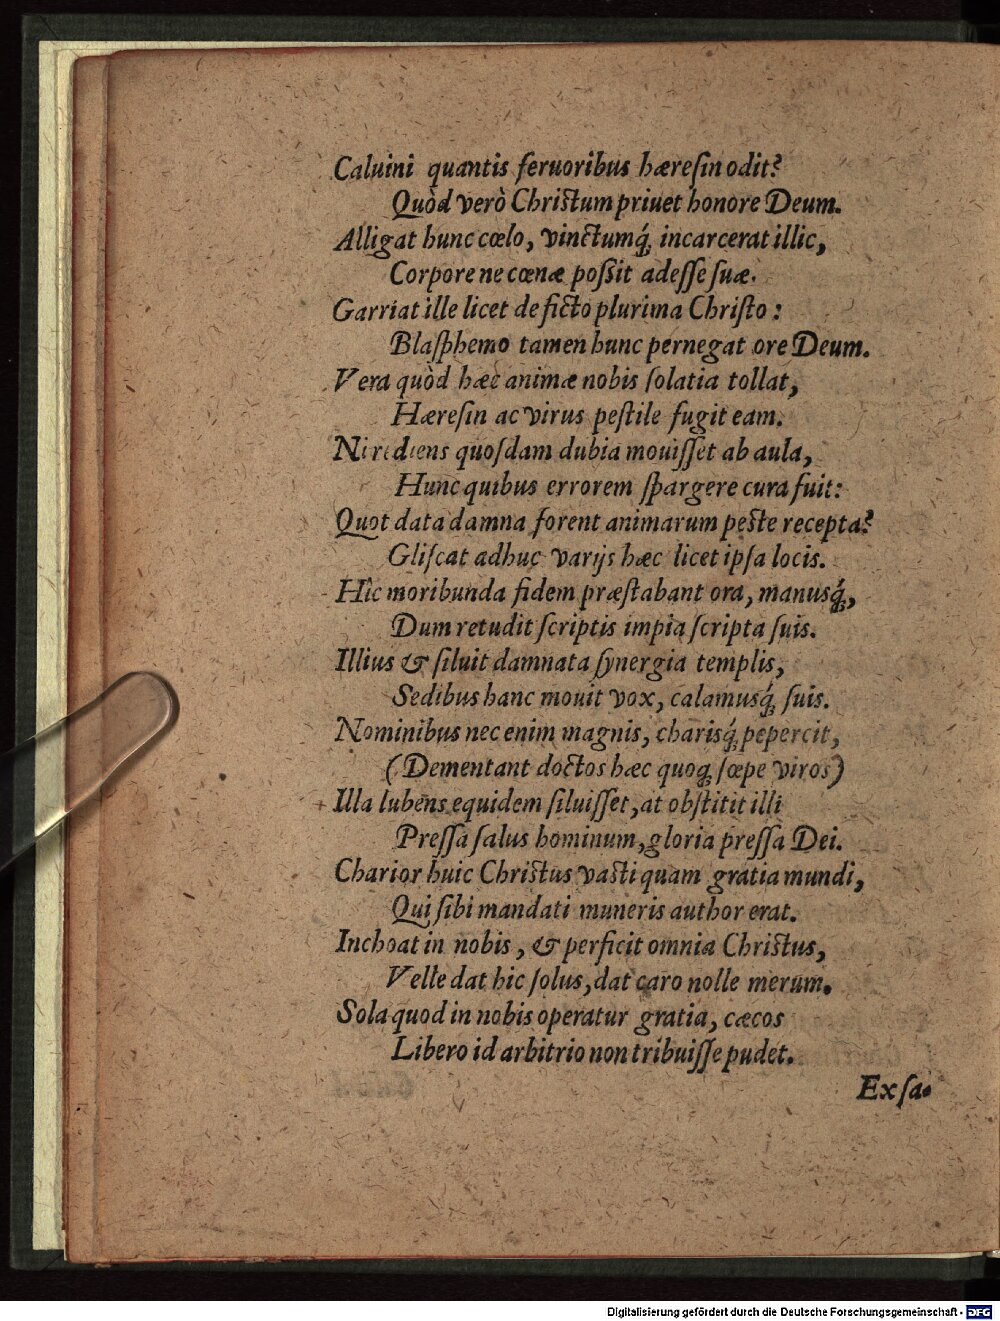 Caluini quantis feruoribus hæreſin odit?
Quòd verò Chriſtum priuet honore Deum.
Alligat hunc cœlo, vinctumq́; incarcerat illic,
Corpore ne cœnæ poſſit adeſſe ſuæ.
Garriat ille licet de ficto plurima Chriſto:
Blaſphemo tamen hunc pernegat ore Deum.
Vera quòd hæc animæ nobis ſolatia tollat,
Hæreſin ac virus peſtile fugit eam.
Ni rediens quoſdam dubia mouiſſet ab aula,
Hunc quibus errorem ſpargere cura fuit:
Quot data damna forent animarum peſte recepta?
Gliſcat adhuc varijs hæc licet ipſa locis.
Hîc moribunda fidem præſtabant ora, manusq́;,
Dum retudit ſcriptis impia ſcripta ſuis.
Illius & ſiluit damnata ſynergia templis,
Sedibus hanc mouit vox, calamusq́; ſuis.
Nominibus nec enim magnis, charisq́; pepercit,
(Dementant doctos hæc quoq; ſœpe viros)
Illa lubens equidem ſiluiſſet, at obſtitit illi
Preſſa ſalus hominum, gloria preſſa Dei.
Charior huic Chriſtus vaſti quam gratia mundi,
Qui ſibi mandati muneris author erat.
Inchoat in nobis, & perficit omnia Chriſtus,
Velle dat hic ſolus, dat caro nolle merum.
Sola quod in nobis operatur gratia, cæcos
Libero id arbitrio non tribuiſſe pudet.
Ex ſa-
Digitalisierung gefördert durch die Deutsche Forschungsgemeinschaft - DFG